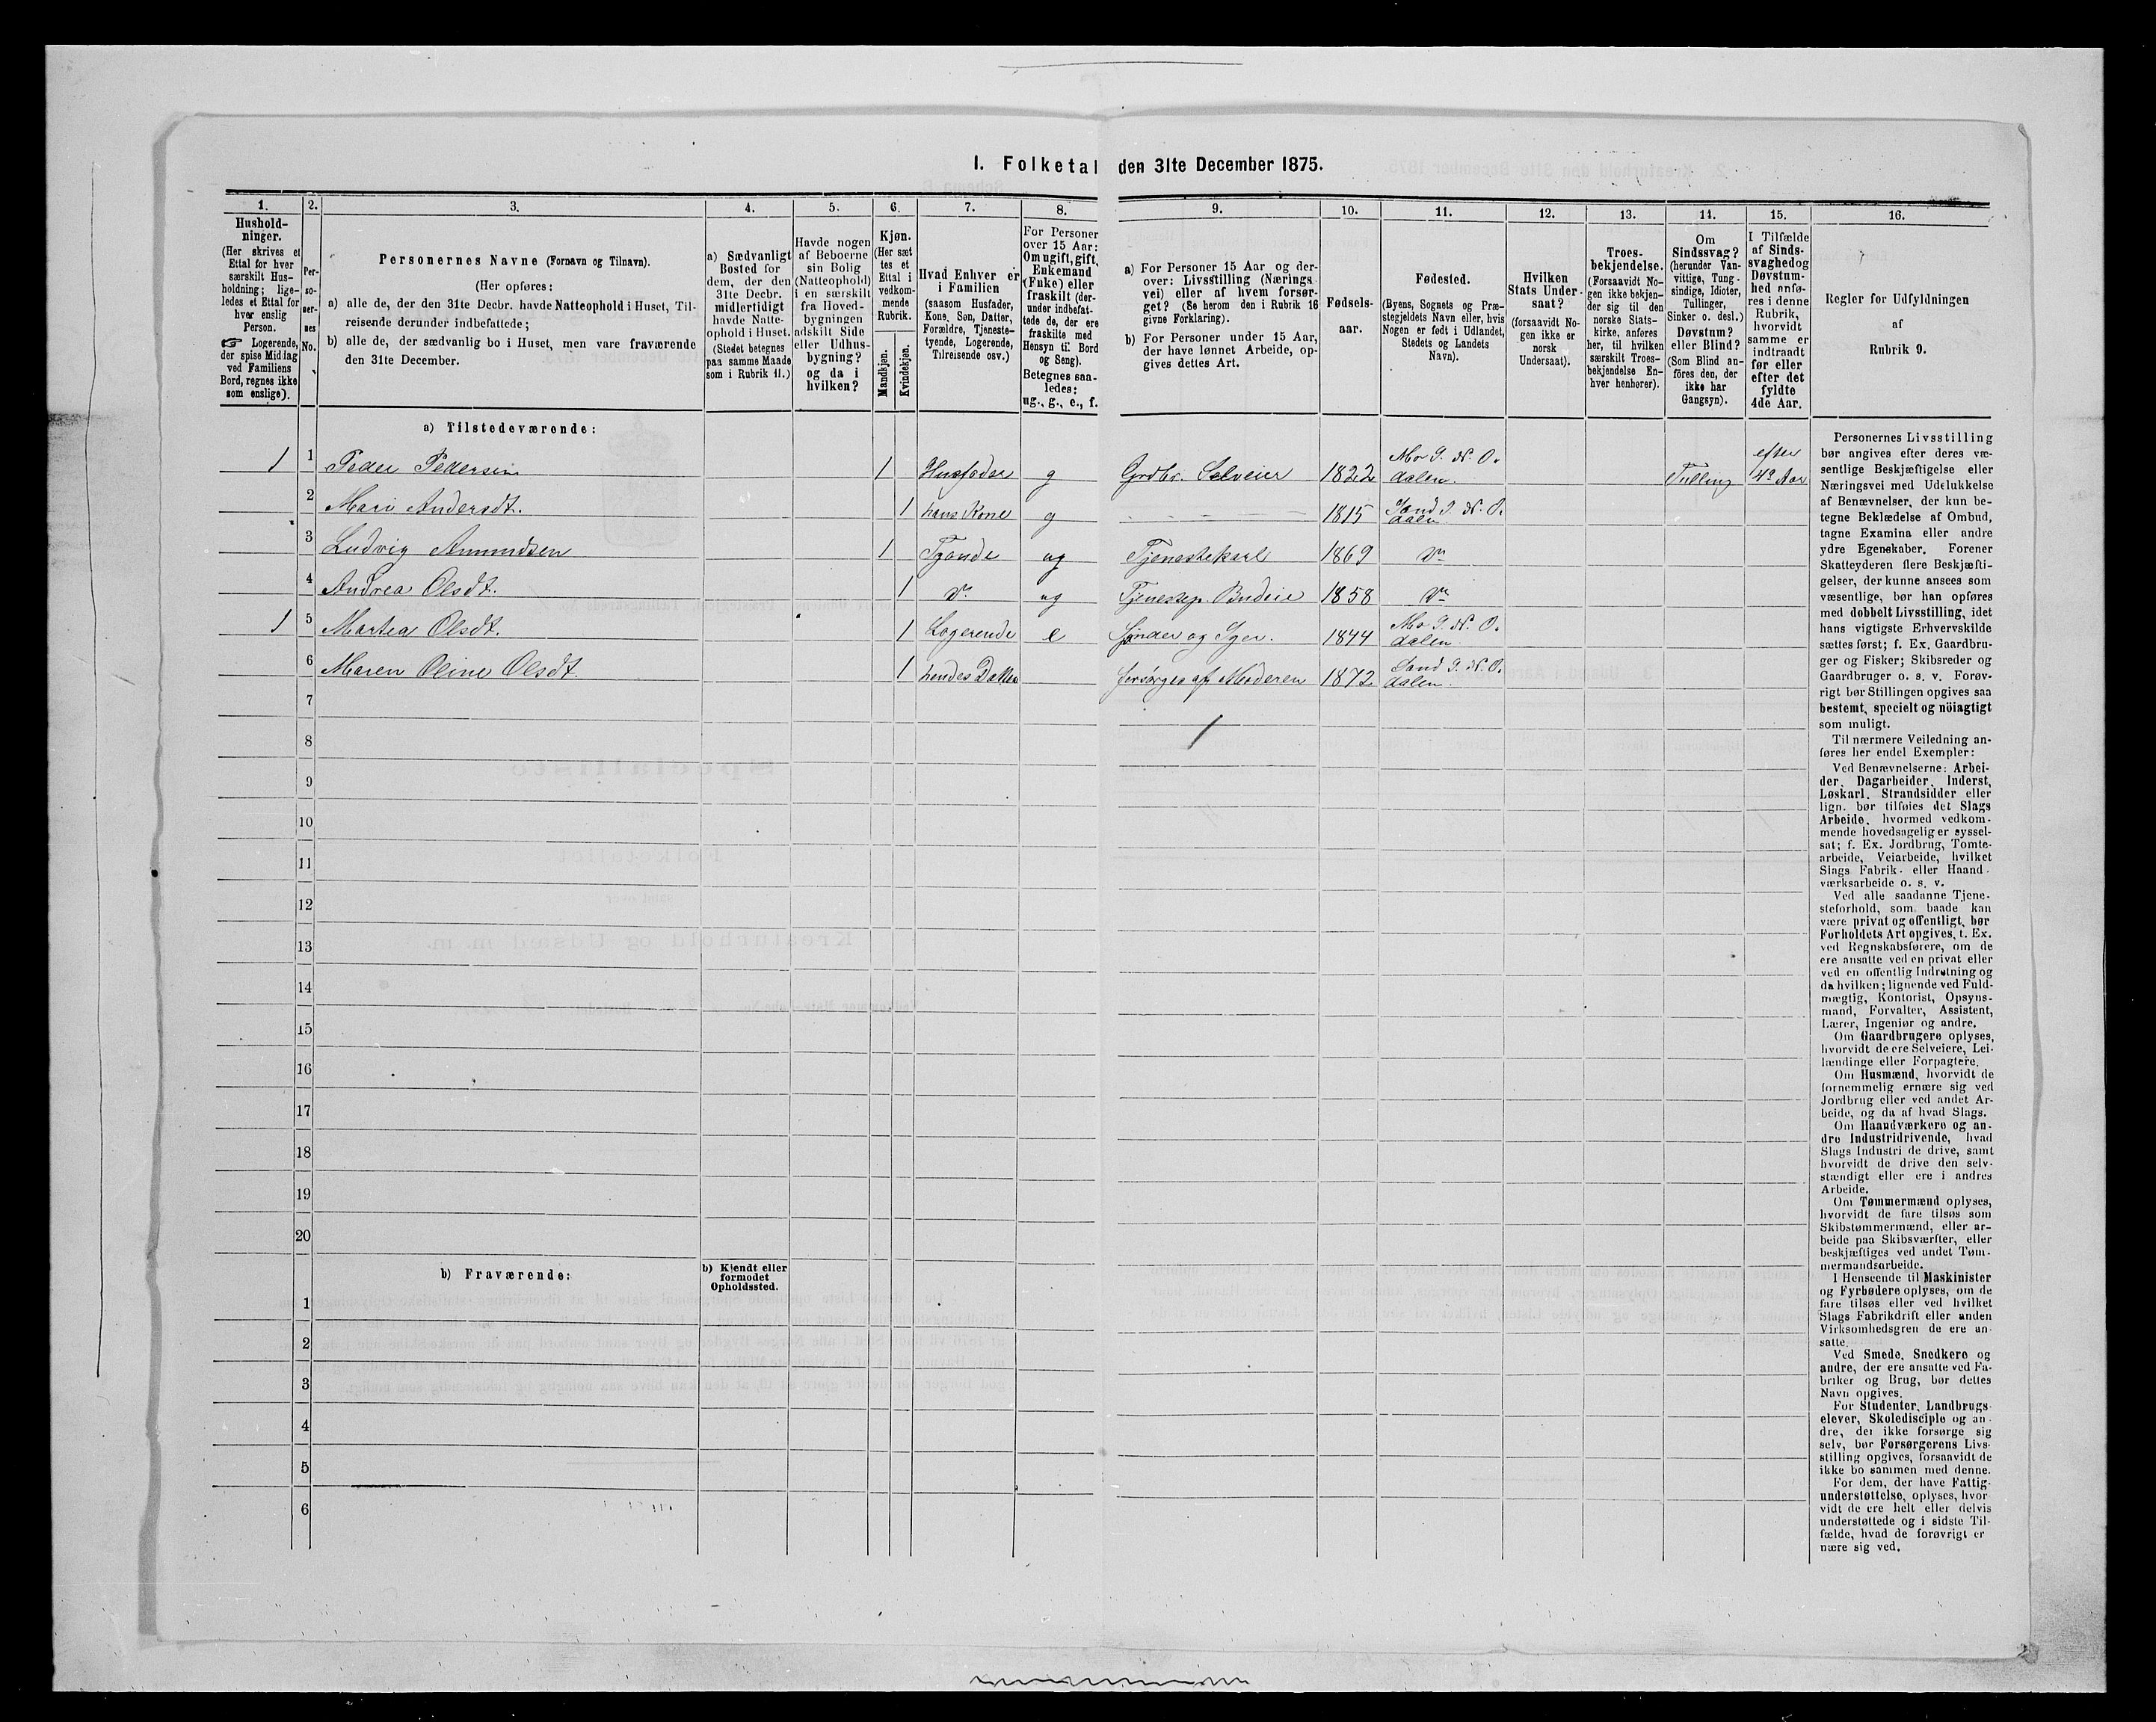 I. Folketal den 31te December 1875.
1. 2. 3. 4. 5. 6. 7. 8. 9. 10. 11. 12. 13. 14. 15. 16.
Hushold-
ninger.
(Her skrives et
Ettal for hver
særskilt Hus-
holdning; lige-
ledes et Ettal for
hver enslig
Person.
☞ Logerende,
der spise Middag
ved Familiens
Bord, regnes ikke
som enslige).
Per-
so-
ner-
nes
No.
Personernes Navne (Fornavn og Tilnavn).
(Her opføres:
a) alle de, der den 31te Decbr. havde Natteophold i Huset, Til-
reisende derunder indbefattede;
b) alle de, der sædvanlig bo i Huset, men vare fraværende
den 31te December.
a) Sædvanligt
Bosted for
dem, der den
31te Decbr.
midlertidigt
havde Natte-
ophold i Huset.
(Stedet betegnes
paa samme Maade
som i Rubrik 11.)
Havde nogen
af Beboerne
sin Bolig
(Natteophold)
i en særskilt
fra Hoved-
bygningen
adskilt Side
eller Udhus-
bygning?
og da i
hvilken?
Kjøn.
(Her sæt
tes et
Ettal i
vedkom-
mende
Rubrik.
Mandkjøn.
Kvindekjøn.
Hvad Enhver er
i Familien
(saasom Husfader,
Kone, Søn, Datter,
Forældre, Tjeneste-
tyende, Logerende,
Tilreisende osv.)
For Personer
over 15 Aar:
Om ugift, gift,
Enkemand
(Enke) eller
fraskilt (der-
under indbefat-
tede de, der ere
fraskilte med
Hensyn til Bord
og Seng).
Betegnes saa-
ledes:
ug., g., e., f.
a) For Personer 15 Aar og der-
over: Livsstilling (Nærings
vei) eller af hvem forsør-
get? (Se herom den i Rubrik 16
givne Forklaring).
b) For Personer under 15 Aar,
der have lønnet Arbeide, op-
gives dettes Art.
Fødsels-
aar.
Fødested.
(Byens, Sognets og Præ-
stegjeldets Navn eller, hvis
Nogen er født i Udlandet,
Stedets og Landets
Navn).
Hvilken
Stats Under-
saat?
(forsaavidt No-
gen ikke er
norsk
Undersaat).
Troes-
bekjendelse.
(Forsaavidt No-
gen ikke bekjen-
der sig til den
norske Stats-
kirke, anføres
her, til hvilken
særskilt Troes-
bekjendelse En-
hver henhører).
Om
Sindssvag?
(herunder Van-
vittige, Tung-
sindige, Idioter,
Tullinger,
Sinker o. desl.)
Døvstum?
eller Blind?
(Som Blind an-
føres den, der
ikke har
Gangsyn).
I Tilfælde
af Sinds-
svaghed og
Døvstum-
hed anfø-
res i denne
Rubrik,
hvorvidt
samme er
indtraadt
før eller
efter det
fyldte
4de Aar.
Regler for Udfyldningen
af
Rubrik 9.
a) Tilstedeværende:
1 1 Peder Pedersen 1 Husfader g Grdbr. Selveier 1822 Mo S. N. O. dalen. Tulling efter 4de Aar
2 Mari Andersdt. 1 hans Kone g 1815 Sand S. N. O. dalen
3 Ludvig Amundsen 1 Tyende ug Tjenestekarl 1869 Do
4 Andrea Olsdt. 1 Do ug Tjenestep. Budeie 1858 Do
1 5 Martea Olsdt. 1 Logerende e Spinder og Syer. 1844 Mo S. N. O. dalen
6 Maren Oline Olsdt. 1 hendes Datter forsørges af Moderen 1872 Sand S. N. O. dalen.
7
8
9
10
11
12
13
14
15
16
17
18
19
20
b) Fraværende:
b) Kjendt eller
formodet
Opholdssted.
1
2
3
4
5
6
Personernes Livsstilling
bør angives efter deres væ-
sentlige Beskjæftigelse eller
Næringsvei med Udelukkelse
af Benævnelser, der kun be-
tegne Beklædelse af Ombud,
tagne Examina eller andre
ydre Egenskaber. Forener
Skatteyderen flere Beskjæfti-
gelser, der kunne ansees som
væsentlige, bør han opføres
med dobbelt Livsstilling, idet
hans vigtigste Erhvervskilde
sættes først; f. Ex. Gaardbru-
ger og Fisker; Skibsreder og
Gaardbruger o. s. v. Forøv-
rigt bør Stillingen opgives saa
bestemt, specielt og nöiagtigt
som muligt.
Til nærmere Veiledning an-
føres her endel Exempler:
Ved Benævnelserne: Arbei-
der, Dagarbeider, Inderst,
Løskarl, Strandsidder eller
lign. bør tilføies det Slags
Arbeide, hvormed vedkom-
mende hovedsagelig er syssel-
sat; f. Ex. Jordbrug, Tomte-
arbeide, Veiarbeide, hvilket
Slags Fabrik- eller Haand-
værksarbeide o. s. v.
Ved alle saadanne Tjene-
steforhold, som baade kan
være privat og offentligt, bør
Forholdets Art opgives, t. Ex.
ved Regnskabsførere, om de
ere ansatte ved en privat eller
ved en offentlig Indretning og
da hvilken; lignende ved Fuld-
mægtig, Kontorist, Opsyns-
mand, Forvalter, Assistent,
Lærer, Ingeniør og andre.
Om Gaardbrugere oplyses,
hvorvidt de ere Selveiere, Lei-
lændinge eller Forpagtere.
Om Husmænd, hvorvidt de
fornemmelig ernære sig ved
Jordbrug eller ved andet Ar-
beide, og da af hvad Slags.
Om Haandværkere og an-
dre Industridrivende, hvad
Slags Industri de drive, samt
hvorvidt de drive den selv-
stændigt eller ere i andres
Arbeide.
Om Tømmermænd oplyses,
hvorvidt de fare tilsøs som
Skibstømmermænd, eller ar-
beide paa Skibsværfter, eller
beskjæftiges ved andet Tøm-
mermandsarbeide.
I Henseende til Maskinister
og Fyrbødere oplyses, om de
fare tilsøs eller ved hvilket
Slags Fabrikdrift eller anden
Virksomhedsgren de ere an-
satte.
Ved Smede, Snedkere og
andre, der ere ansatte ved Fa-
briker og Brug, bør dettes
Navn opgives.
For Studenter, Landbrugs-
elever, Skoledisciple og an-
dre, der ikke forsørge sig
selv, bør Forsørgerens Livs-
stilling opgives, forsaavidt de
ikke bo sammen med denne.
For dem, der have Fattig-
understøttelse, oplyses, hvor-
vidt de ere helt eller delvis
understøttede og i sidste Til-
fælde, hvad de forøvrigt er-
nære sig ved.